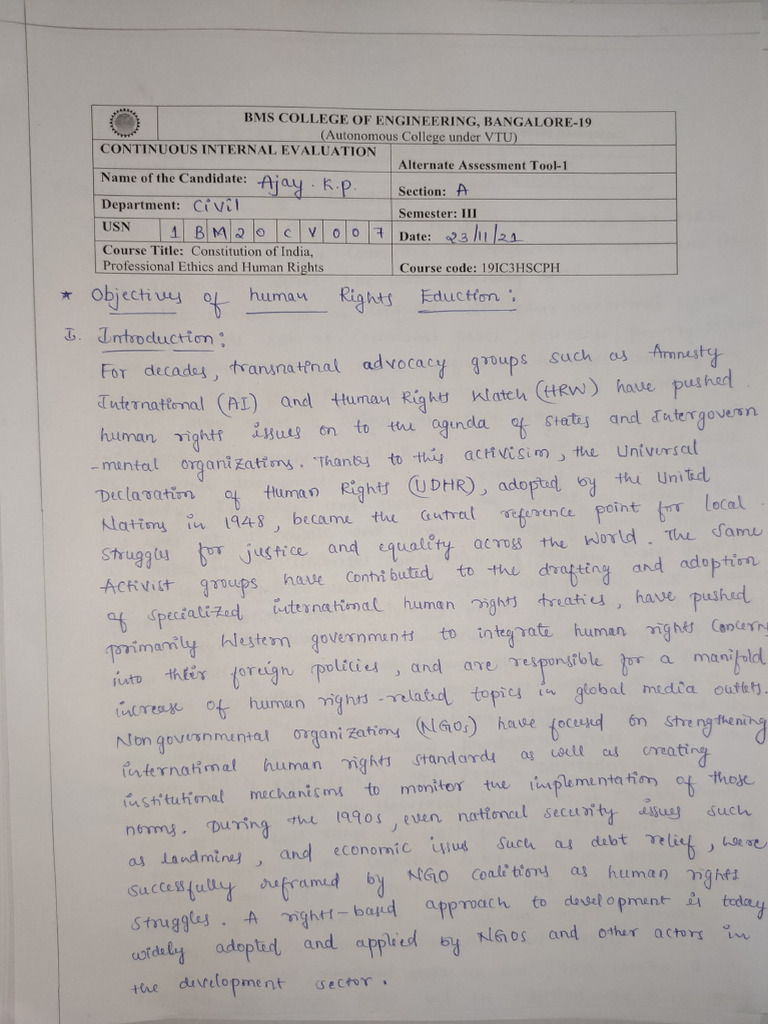 BMS COLLEGE OF ENGINEERING, BANGALORE-19
(Autonomous College under VTU)
CONTINUOUS INTERNAL EVALUATION
Alternate Assessment Tool-1
Name of the Candidate: Ajay. K.P.
Section: A
Department: Civil
Semester: III
USN 1 B M 2 0 C V 0 0 7
Date: 23/11/21
Course Title: Constitution of India,
Professional Ethics and Human Rights
Course code: 19IC3HSCPH
* Objectives of human Rights Eduction:
I. Introduction:
For decades, transnatinal advocacy groups such as Amnesty
International (AI) and Human Rights Watch (HRW) have pushed
human rights issues on to the agenda of states and Intergovern
-mental organizations. Thanks to this activisim, the Universal
Declaration of Human Rights (UDHR), adopted by the United
Nations in 1948, became the central reference point for local
struggles for justice and equality across the world. The same
Activist groups have contributed to the drafting and adoption
of specialized international human rights treaties, have pushed
primarily Western governments to integrate human rights concerns
into their foreign policies, and are responsible for a manifold
increase of human rights-related topics in global media outlets.
Non governmental organizations (NGOs) have focused on strengthening
international human rights standards as well as creating
institutional mechanisms to monitor the implementation of those
norms. During the 1990s, even national security issues such
as landmines, and economic issus such as debt relief, were
successfully reframed by NGO coalitions as human rights
struggles. A rights-based approach to development is today
widely adopted and applied by NGOs and other actors in
the development sector.